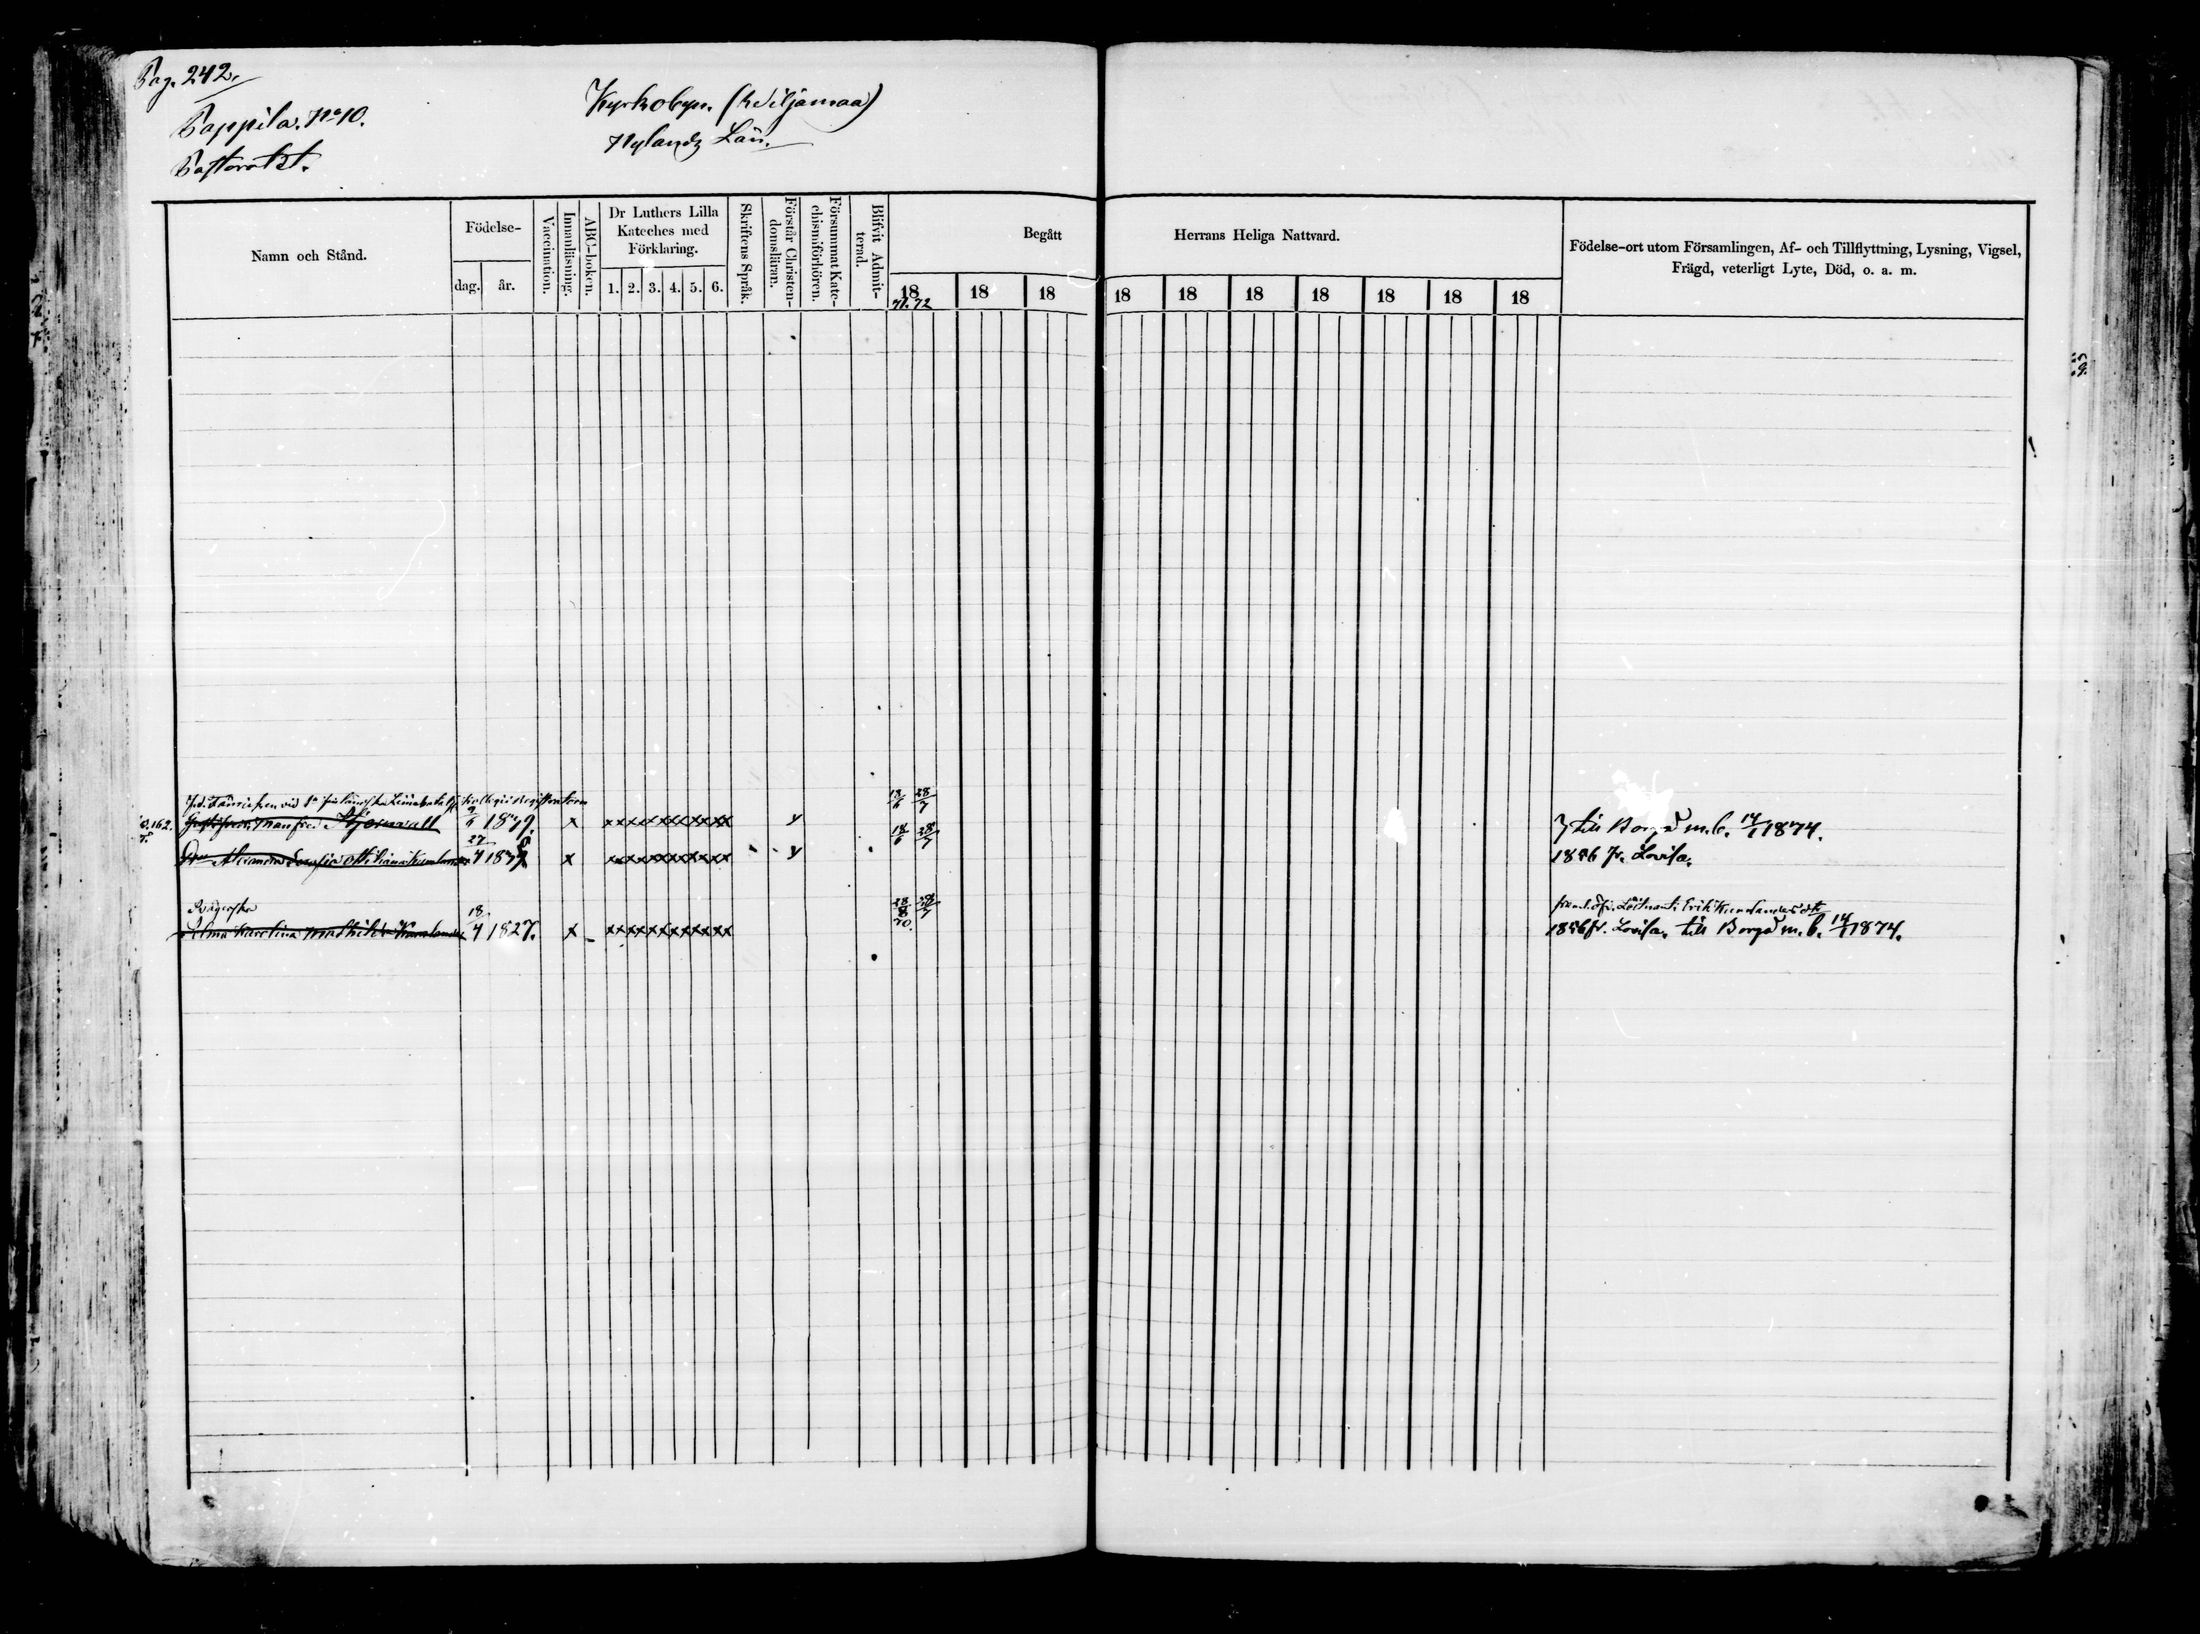 Pag. 242.
Pappila. No 10.
Pastoratet.
Kyrkobyn. (Wiljamaa)
Nylands Län.
Namn och Stånd.
Födelse-
dag. år.
Vaccination.
Innanläsning.
ABC-boken.
Dr Luthers Lilla
Kateches med
Förklaring.
1. 2. 3. 4. 5. 6.
Skriftens Språk.
Förstår Christen-
domsläran.
Försummat Kate-
chismiförhören.
Blifvit Admit-
terad.
Begått Herrans Heliga Nattvard.
18 18 18 18 18 18 18 18 18 18
71. 72
Födelse-ort utom Församlingen, Af- och Tillflyttning, Lysning, Vigsel,
Frägd, veterligt Lyte, Död, o. a. m.
vid finländska Kollegii Registratorn
Manfred
x xxxxxxxxxxxx y
till Borgå m.b. 14/1 1874.
Alexandra Sofia
27/4
x xxxxxxxxxxxx y
18/6 28/7
1856 fr. Lovisa.
Karolina Mathilda
18/4 1827. x xxxxxxxxxxxx
28/8 70. 28/7
Löitnant Erik
1856 fr. Lovisa. till Borgå m.b. 14/1 1874.